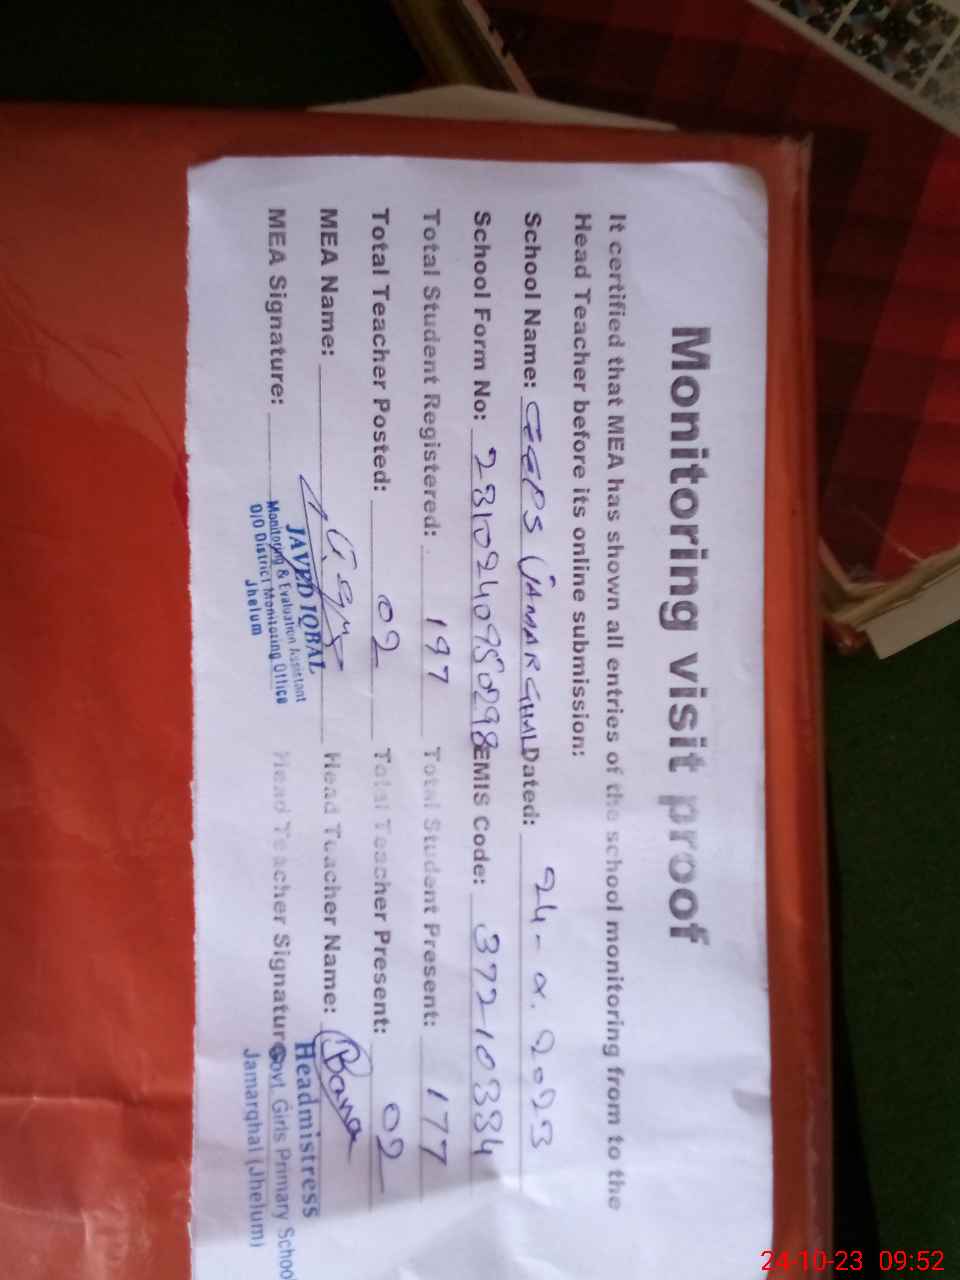 Monitoring visit proof
It certified that MEA has shown all entries of the school monitoring from to the
Head Teacher before its online submission:
School Name: GGPS JAMARGHAL Dated: 24-x.2023
School Form No: 2310240950298 EMIS Code: 37210334
Total Student Registered: 197 Total Student Present: 177
Total Teacher Posted: 02 Total Teacher Present: 02
MEA Name: Head Teacher Name:
MEA Signature: Head Teacher Signature
JAVED IQBAL
Monitoring & Evaluation Assistant
O/O District Monitoring Office
Jhelum
Headmistress
Govt. Girls Primary School
Jamarghal (Jhelum)
24-10-23 09:52